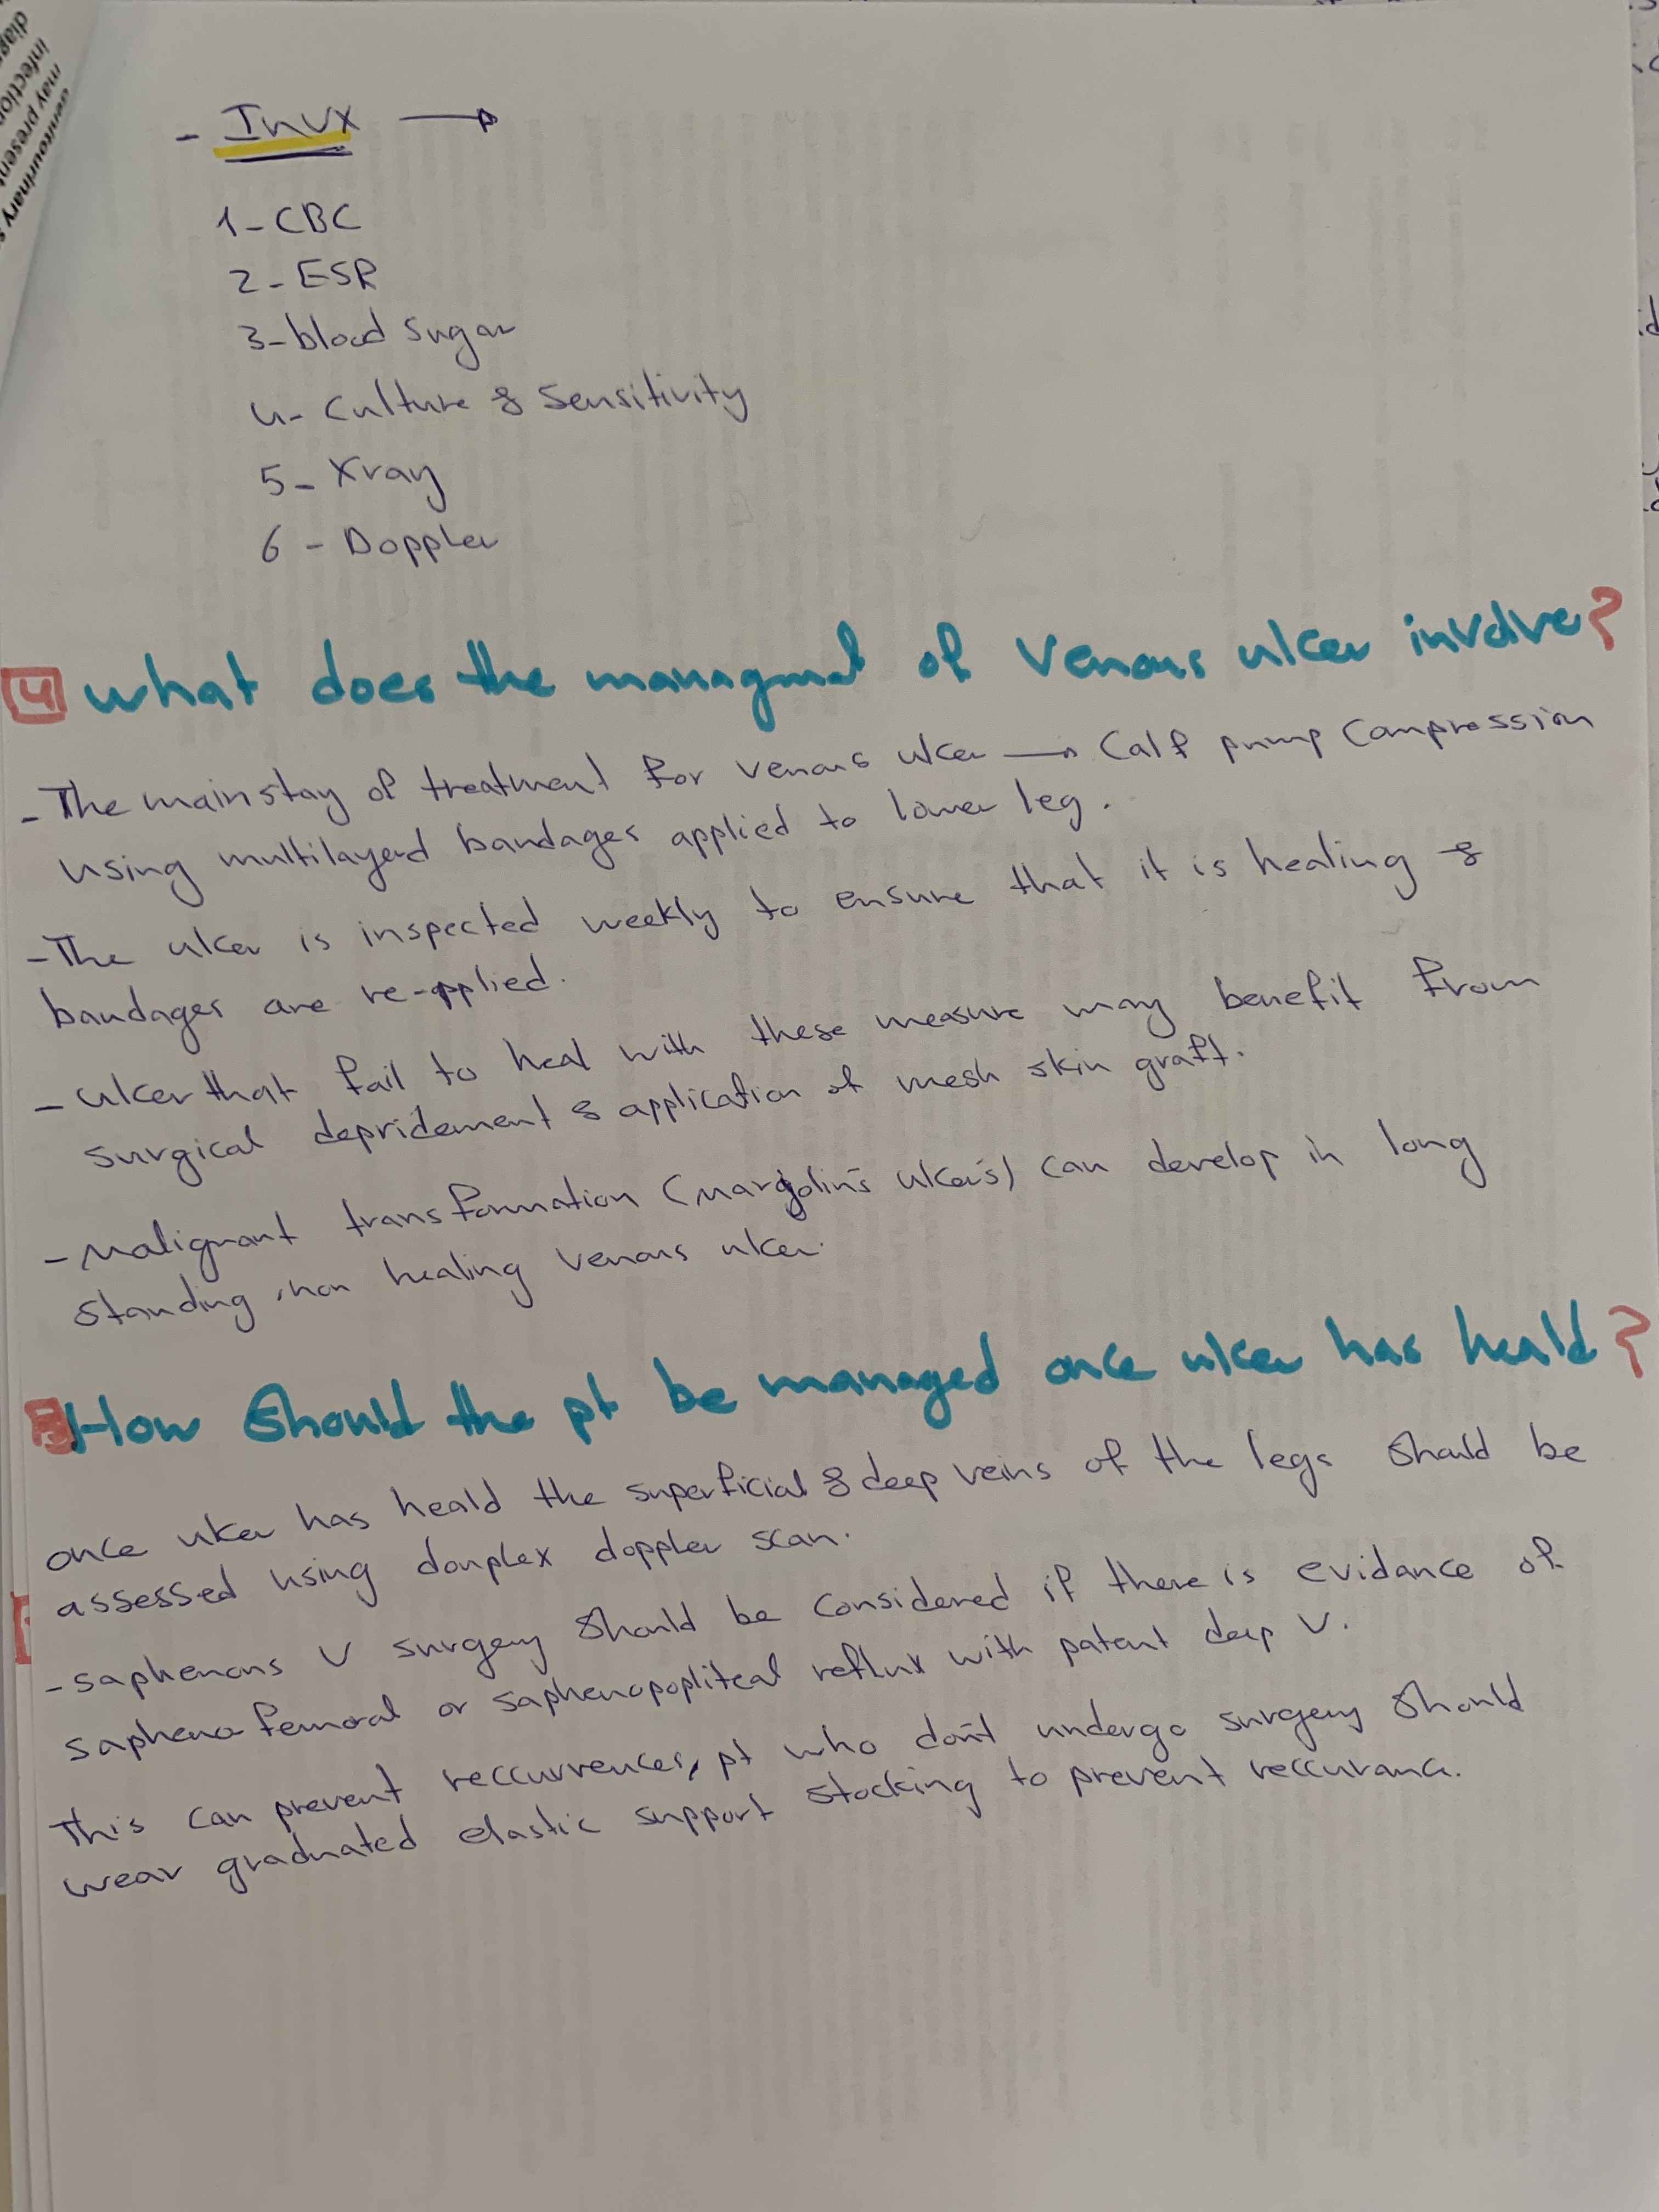 genitourinary
may present
infection
- Invx →
1- CBC
2- ESR
3- blood sugar
4- Culture & Sensitivity
5- Xray
6- Doppler
4 what does the managmet of Venous ulcer involve?
- The mainstay of treatment for venous ulcer → Calf pump Compression
using multilayerd bandages applied to lower leg.
- The ulcer is inspected weekly to ensure that it is healing &
bandages are re-applied.
- ulcer that fail to heal with these measure may benefit from
surgical depridement & application of mesh skin graft.
- Malignant transformation (Marjolin's ulcer's) can develop in long
standing, non healing venous ulcer.
5 How Should the pt be managed once ulcer has heald?
once ulcer has heald the superficial & deep veins of the legs Should be
assessed using douplex doppler scan.
- saphenous V surgery Should be considered if there is evidance of
sapheno femoral or saphenopopliteal reflux with patent deep V.
This can prevent reccurrences, pt who don't undergo surgery Should
wear graduated elastic support stocking to prevent reccurance.